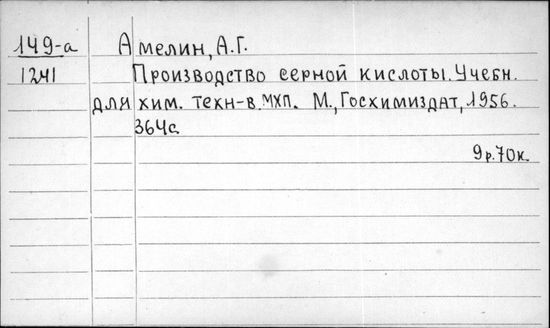 149-а Амелин, А.Г.
1241 Производство серной кислоты. Учебн.
для хим. техн-в МХП. М., Госхимиздат, 1956.
364с.
9р.70к.